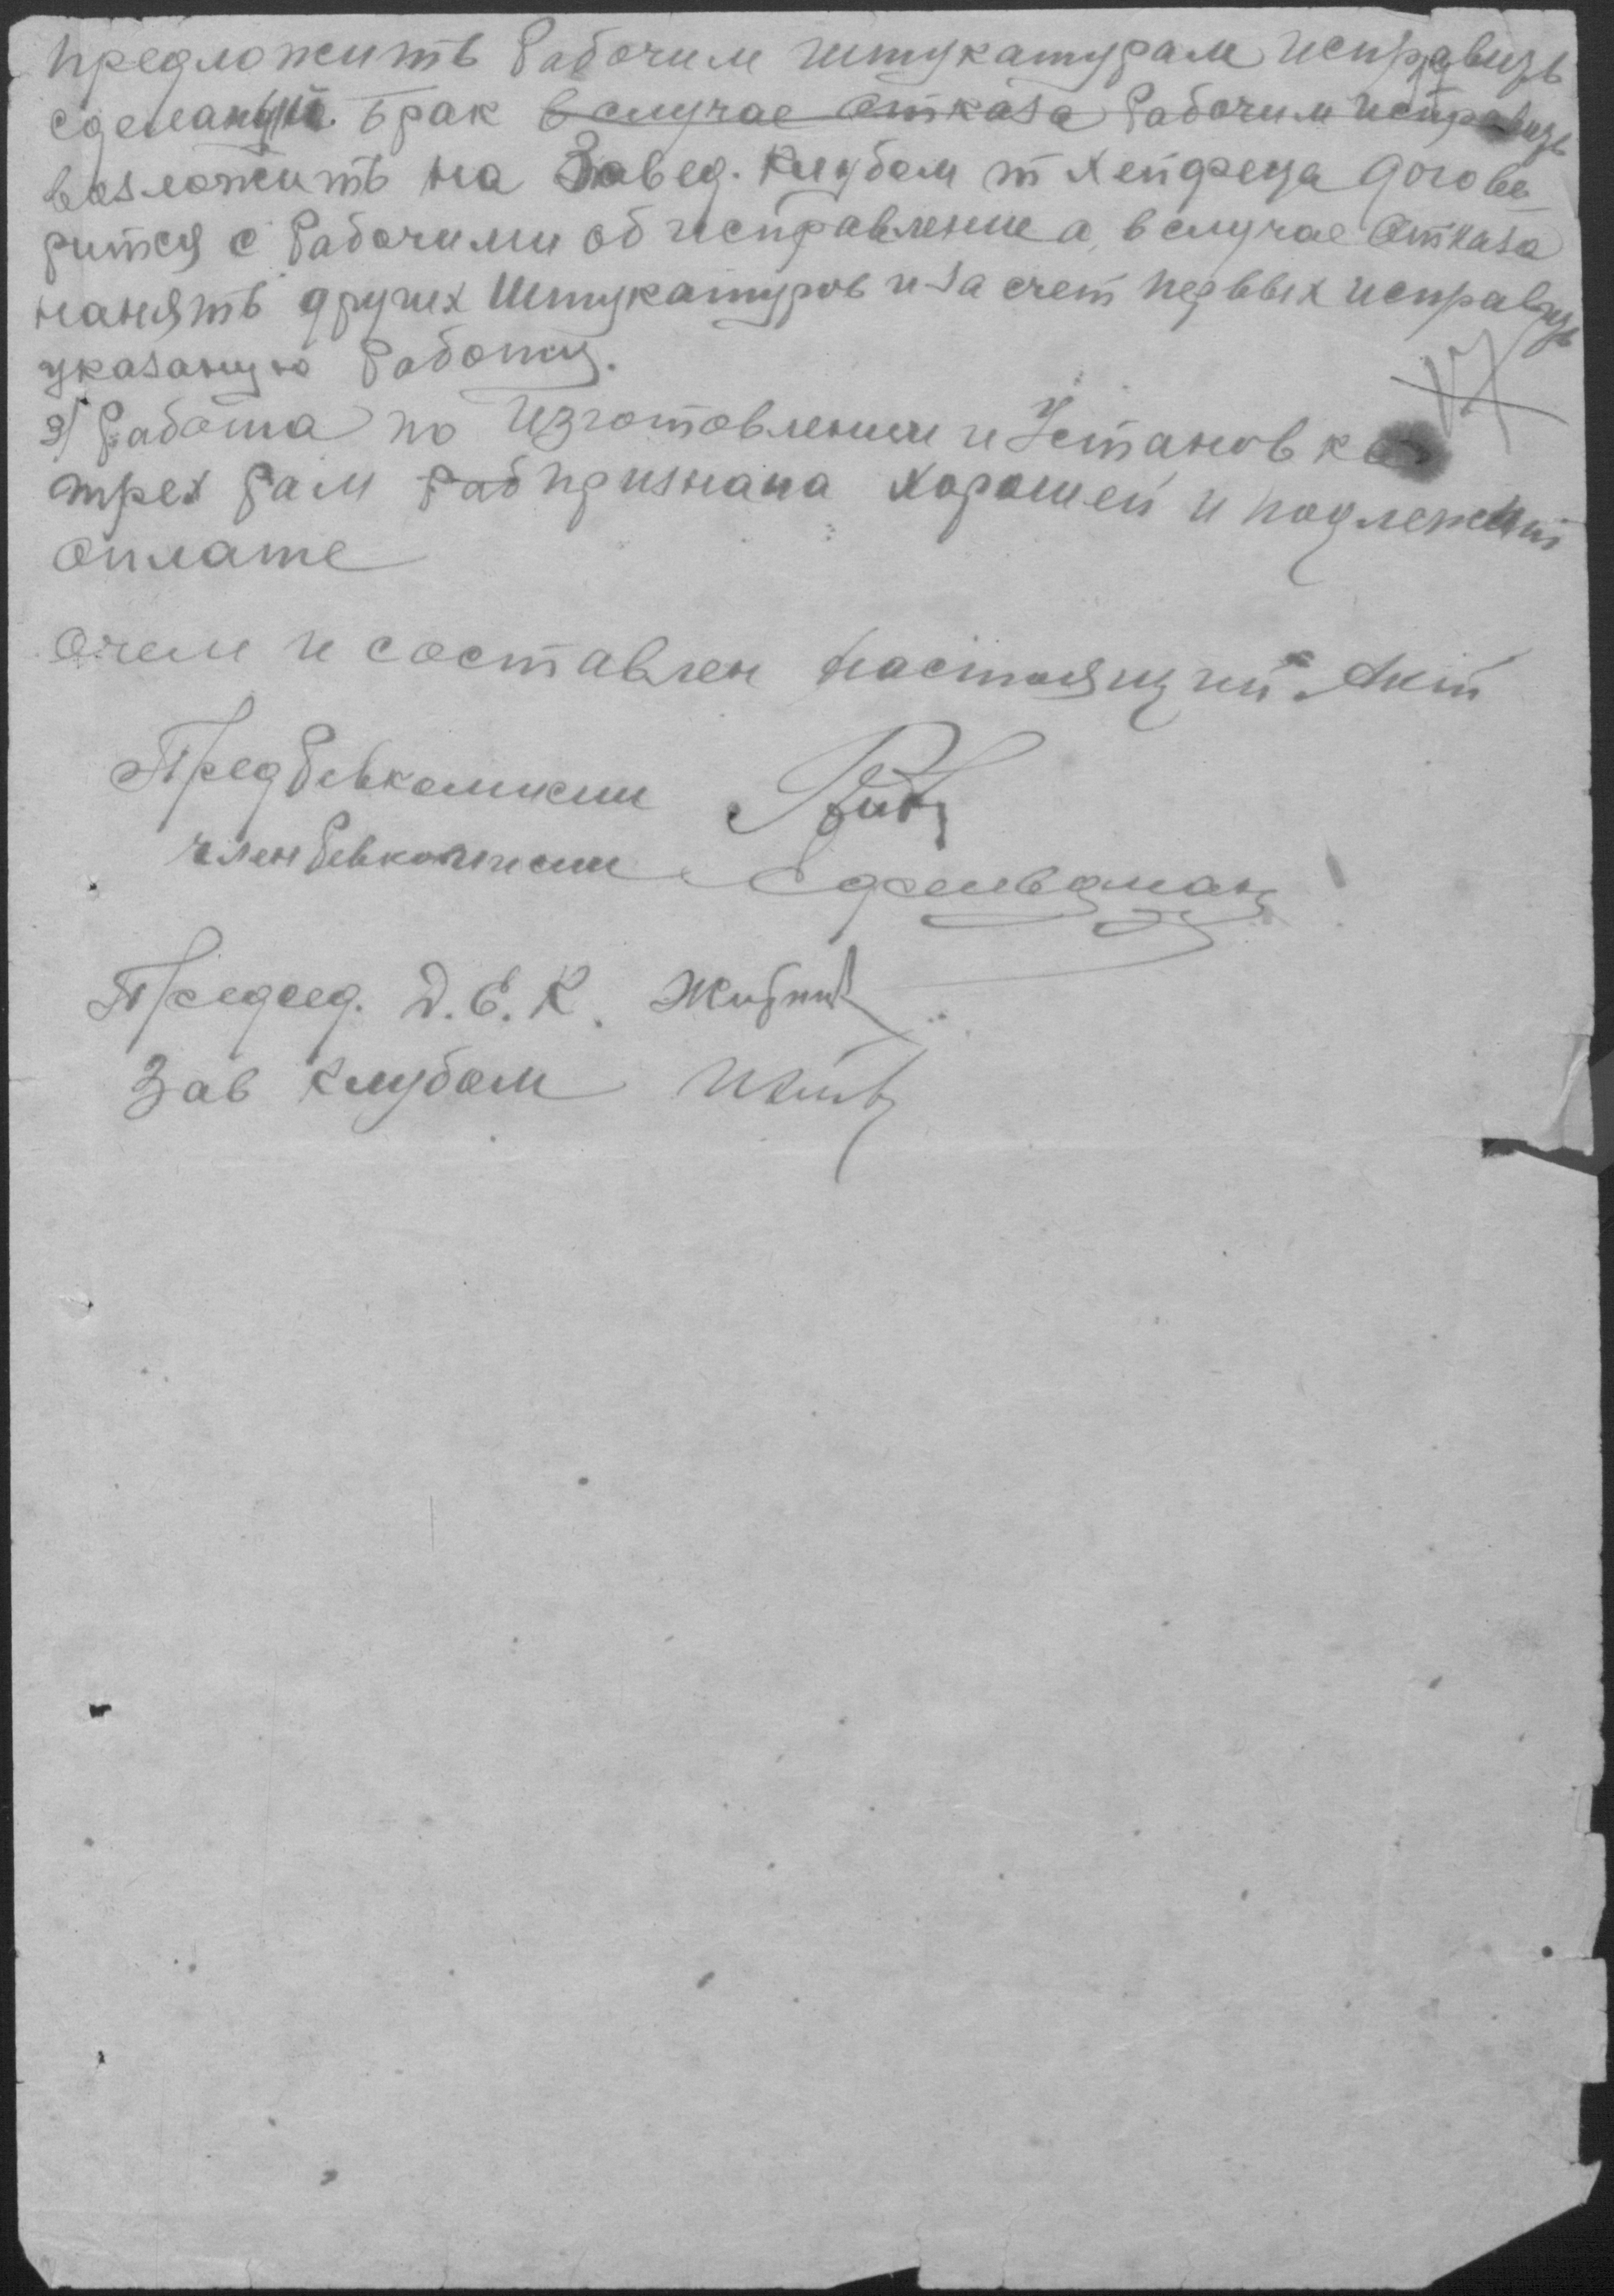 предложить Рабочим штукатурам исправить
сделаный брак в случае отказа Рабочим исправить
возложить на Завед. Клубом т Хейфеца догове
ритси с Рабочими об исправление а, в случае Отказа
нанять других Штукатуров и за счет первых исправить
указаную Работу.
3/ Работа по Изготовлении и Установке
трех рам Раб признана хорошей и подлежит
оплате
Очем и составлен настоящий Акт
Пред Ревкомисии
член Ревкомисии
Председ. Д.Е.К.
Зав Клубом